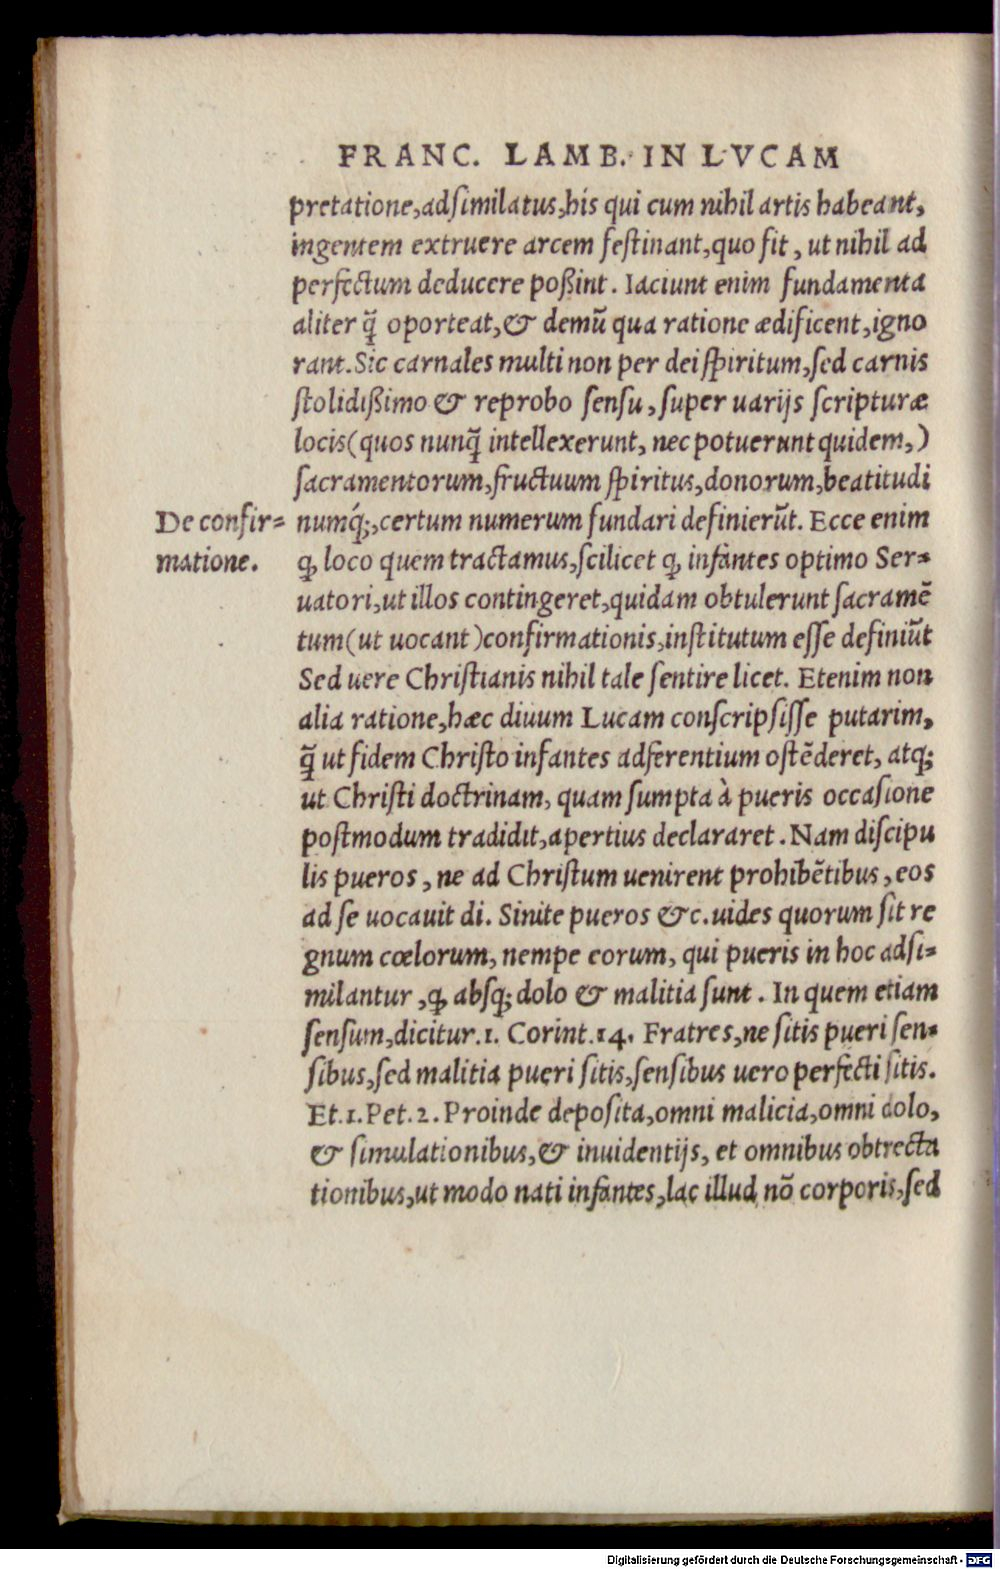 FRANC. LAMB. IN LVCAM
pretatione, adsimilatus, his qui cum nihil artis habeant,
ingentem extruere arcem festinant, quo fit, ut nihil ad
perfectum deducere poßint. Iaciunt enim fundamenta
aliter q̃ oporteat, & demũ qua ratione ædificent, igno
rant. Sic carnales multi non per dei spiritum, sed carnis
stolidißimo & reprobo sensu, super uarijs scripturæ
locis (quos nunq̃ intellexerunt, nec potuerunt quidem,)
sacramentorum, fructuum spiritus, donorum, beatitudi
De confir=
matione.
numq́;, certum numerum fundari definierũt. Ecce enim
ꝙ loco quem tractamus, scilicet ꝙ infantes optimo Ser=
uatori, ut illos contingeret, quidam obtulerunt sacramẽ
tum (ut uocant) confirmationis, institutum esse definiũt
Sed uere Christianis nihil tale sentire licet. Etenim non
alia ratione, hæc diuum Lucam conscripsisse putarim,
q̃ ut fidem Christo infantes adferentium ostẽderet, atq;
ut Christi doctrinam, quam sumpta à pueris occasione
postmodum tradidit, apertius declararet. Nam discipu
lis pueros, ne ad Christum uenirent prohibẽtibus, eos
ad se uocauit di. Sinite pueros &c. uides quorum sit re
gnum cœlorum, nempe eorum, qui pueris in hoc adsi=
milantur, ꝙ absq; dolo & malitia sunt. In quem etiam
sensum, dicitur. 1. Corint. 14. Fratres, ne sitis pueri sen=
sibus, sed malitia pueri sitis, sensibus uero perfecti sitis.
Et. 1. Pet. 2. Proinde deposita, omni malicia, omni dolo,
& simulationibus, & inuidentijs, et omnibus obtrecta
tionibus, ut modo nati infantes, lac illud nõ corporis, sed
Digitalisierung gefördert durch die Deutsche Forschungsgemeinschaft - DFG